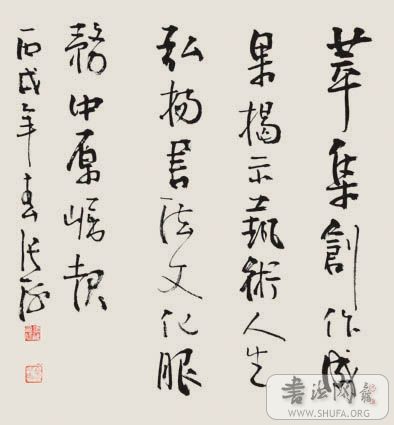 萃集創作成
果揭示藝術人生
弘揚書法文化服
務中原崛起
丙戌年春張
書法网
WWW.SHUFA.ORG